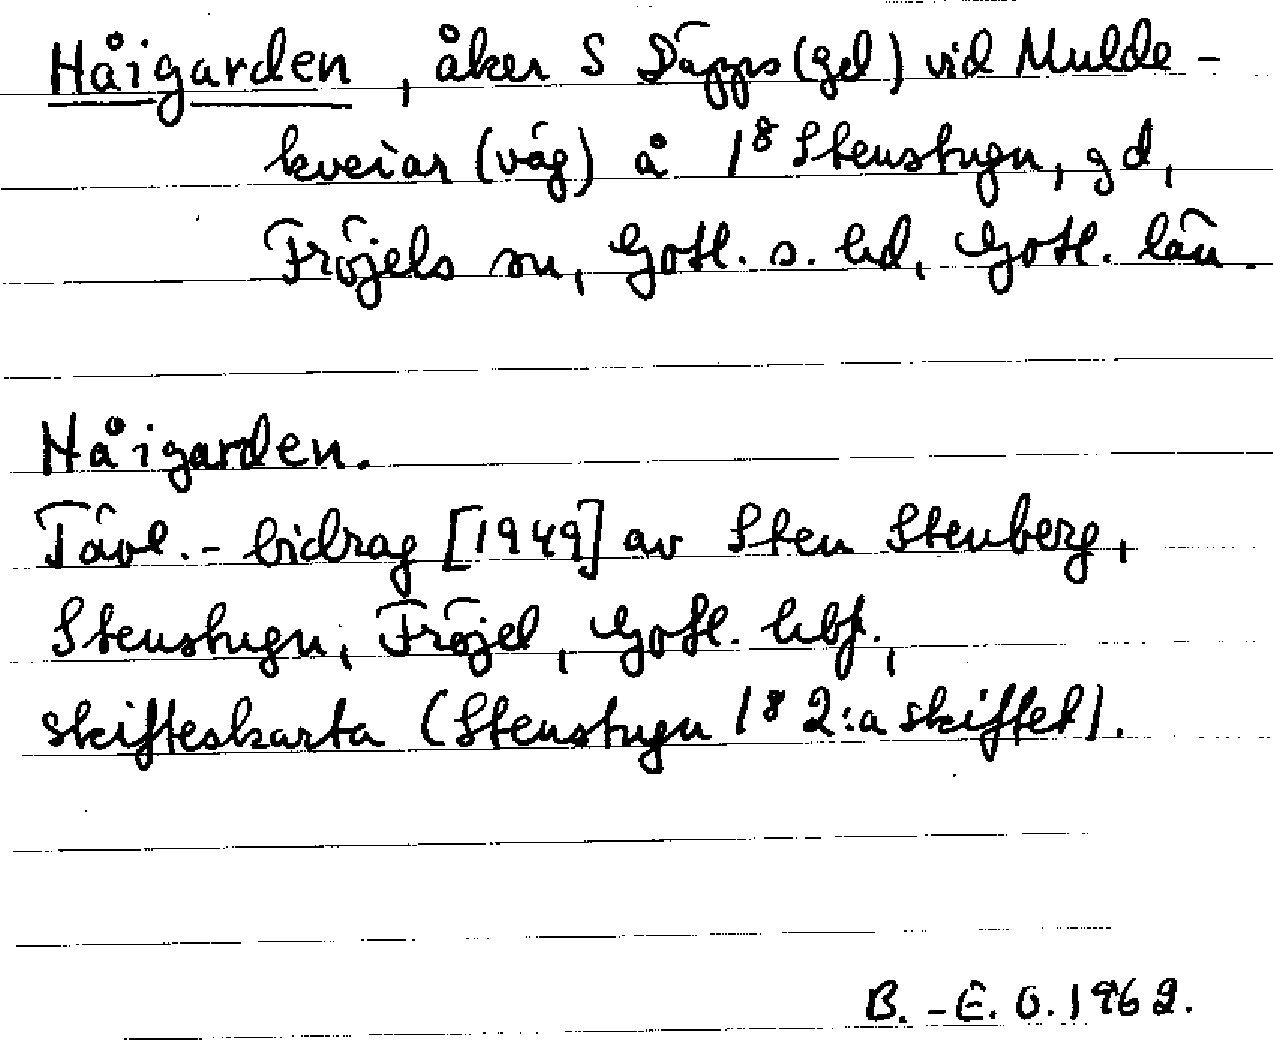 Håigarden, åker S Däpps (gd) vid Mulde-
kveiar (väg) å 1⁸ Stenstugn, gd,
Fröjels sn, Gotl. s. hd, Gotl. län.
Håigarden.
Tävl.-bidrag [1949] av Sten Stenberg,
Stenstugn, Fröjel, Gotl. hbf.,
skifteskarta (Stenstugn 1⁸ 2:a skiftet).
B.-E. O. 1962.